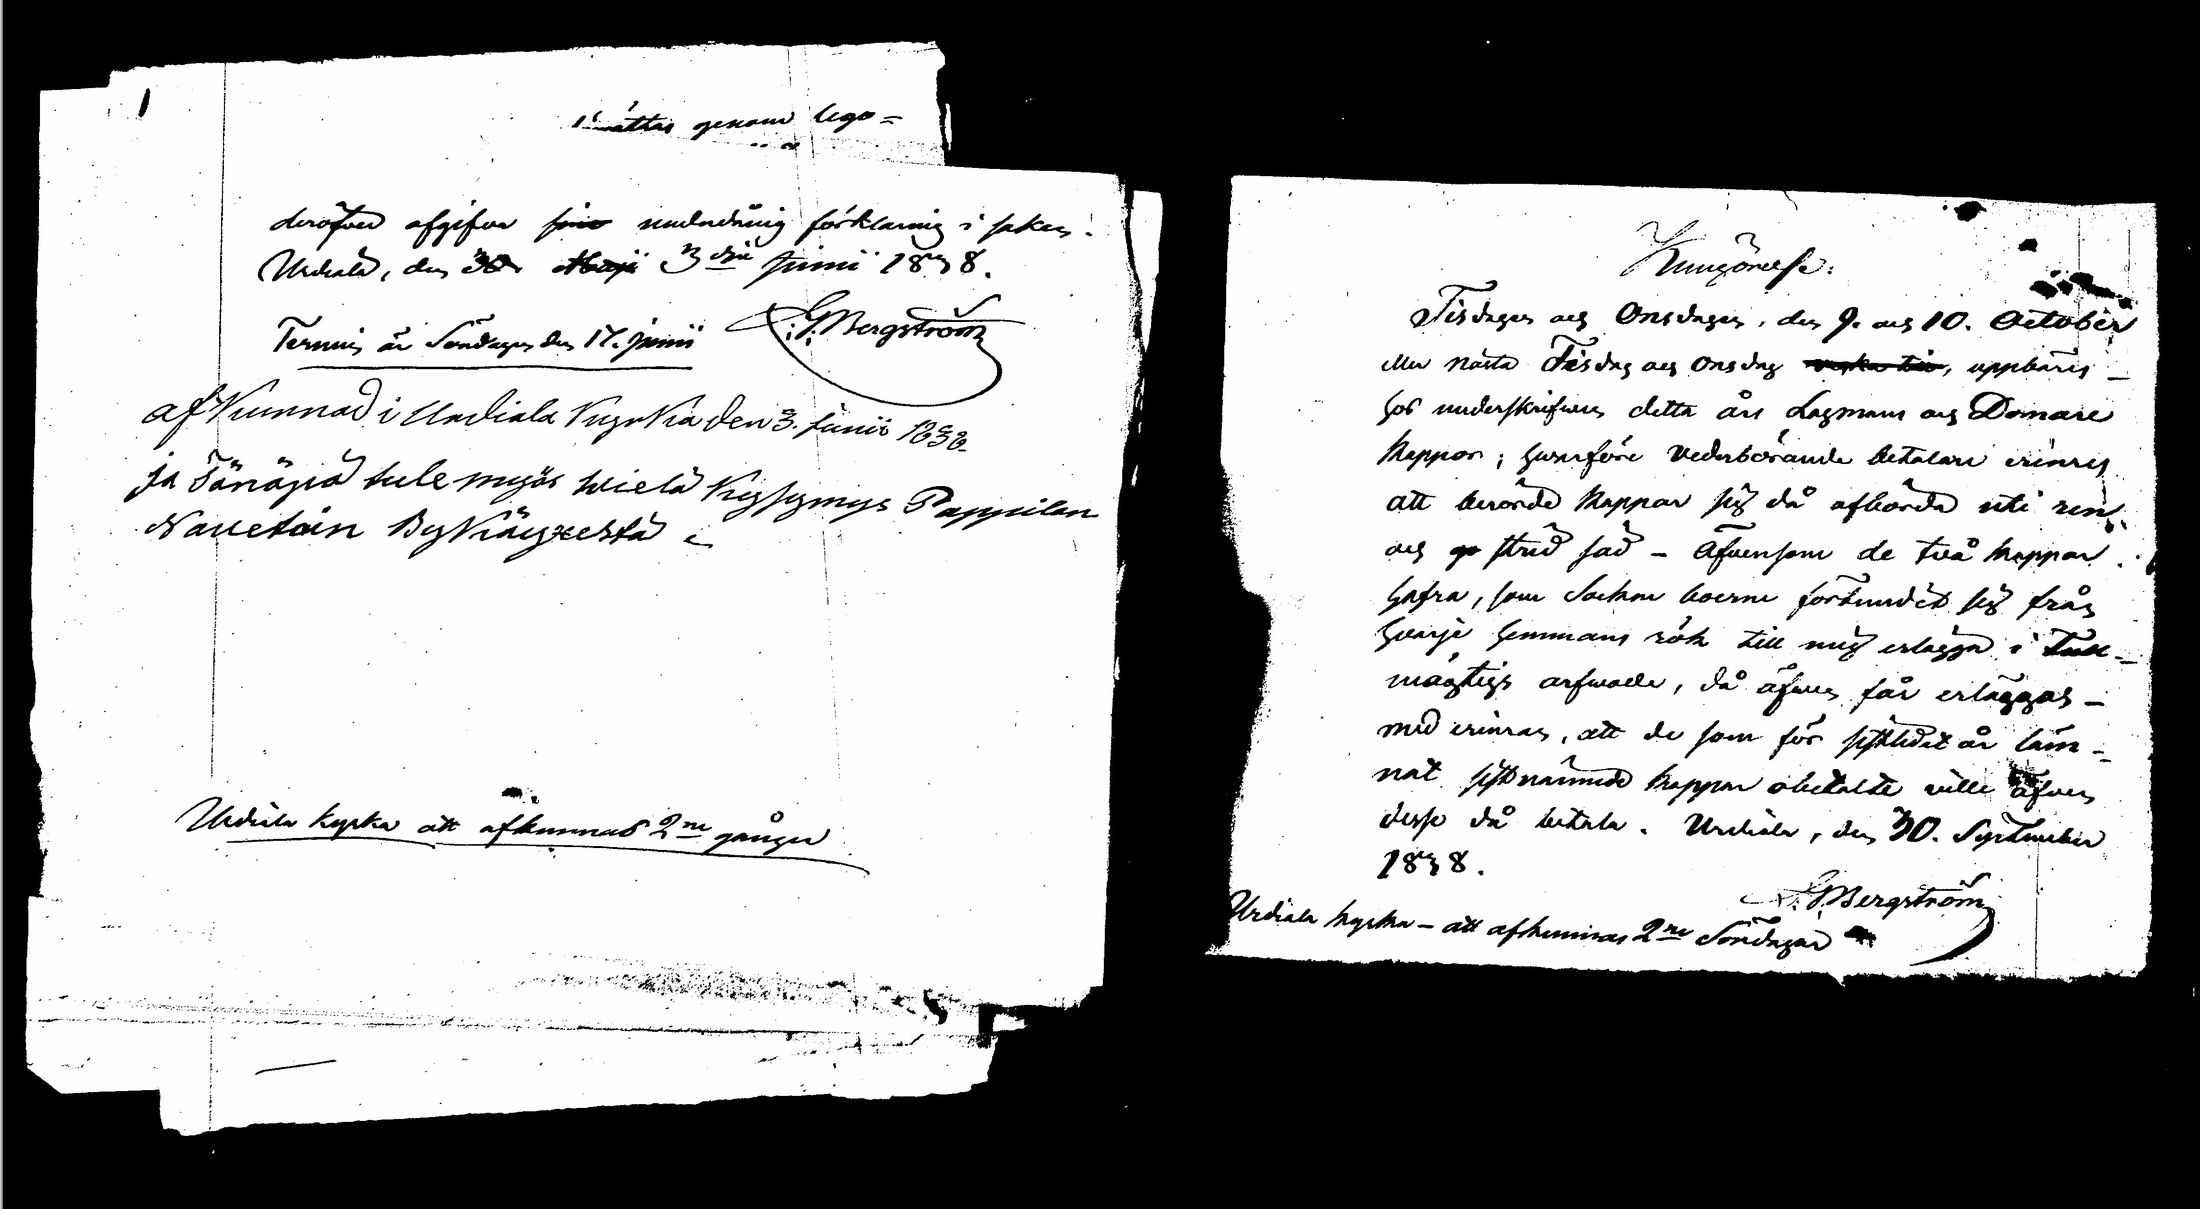 ättas genom lego=
deröfver afgifva sine undordånig förklaring i saken.
Urdiala, den 3dje Junii 1838.
Termin är Söndagen den 17. Junii
G. Bergström
afkunnad i Urdiala Kyrka den 3. Junii 1838
ja Tänäpiä tule myös wielä Kysymys Pappilan
Navetan Bykkäyxestä
Urdiala kyrka att afkunnas 2ne gånger
Kungörelse:
Tisdagen och Onsdagen, den 9. och 10. October
eller nästa Tisdag och Onsdag, uppbäres
hos underskrifven detta års Lagmans och Domare
Kappor; hvarföre vederbörande betalare erinras
att berörde Kappar sig då afbörda uti ren
och strid säd – Äfvensom de två kappar
hafra, som Socken boerne förbundit sig från
hvarje hemmans rök till mig erlägga i Full-
mägtigs arfwode, då äfven får erläggas –
med erinran, att de som för sistledet år läm-
nat sistnämnde kappar obetalte ville äfven
desse då betala. Urdiala, den 30. September
1838.
G. Bergström
Urdiala kyrka – att afkunnas 2ne Söndagar